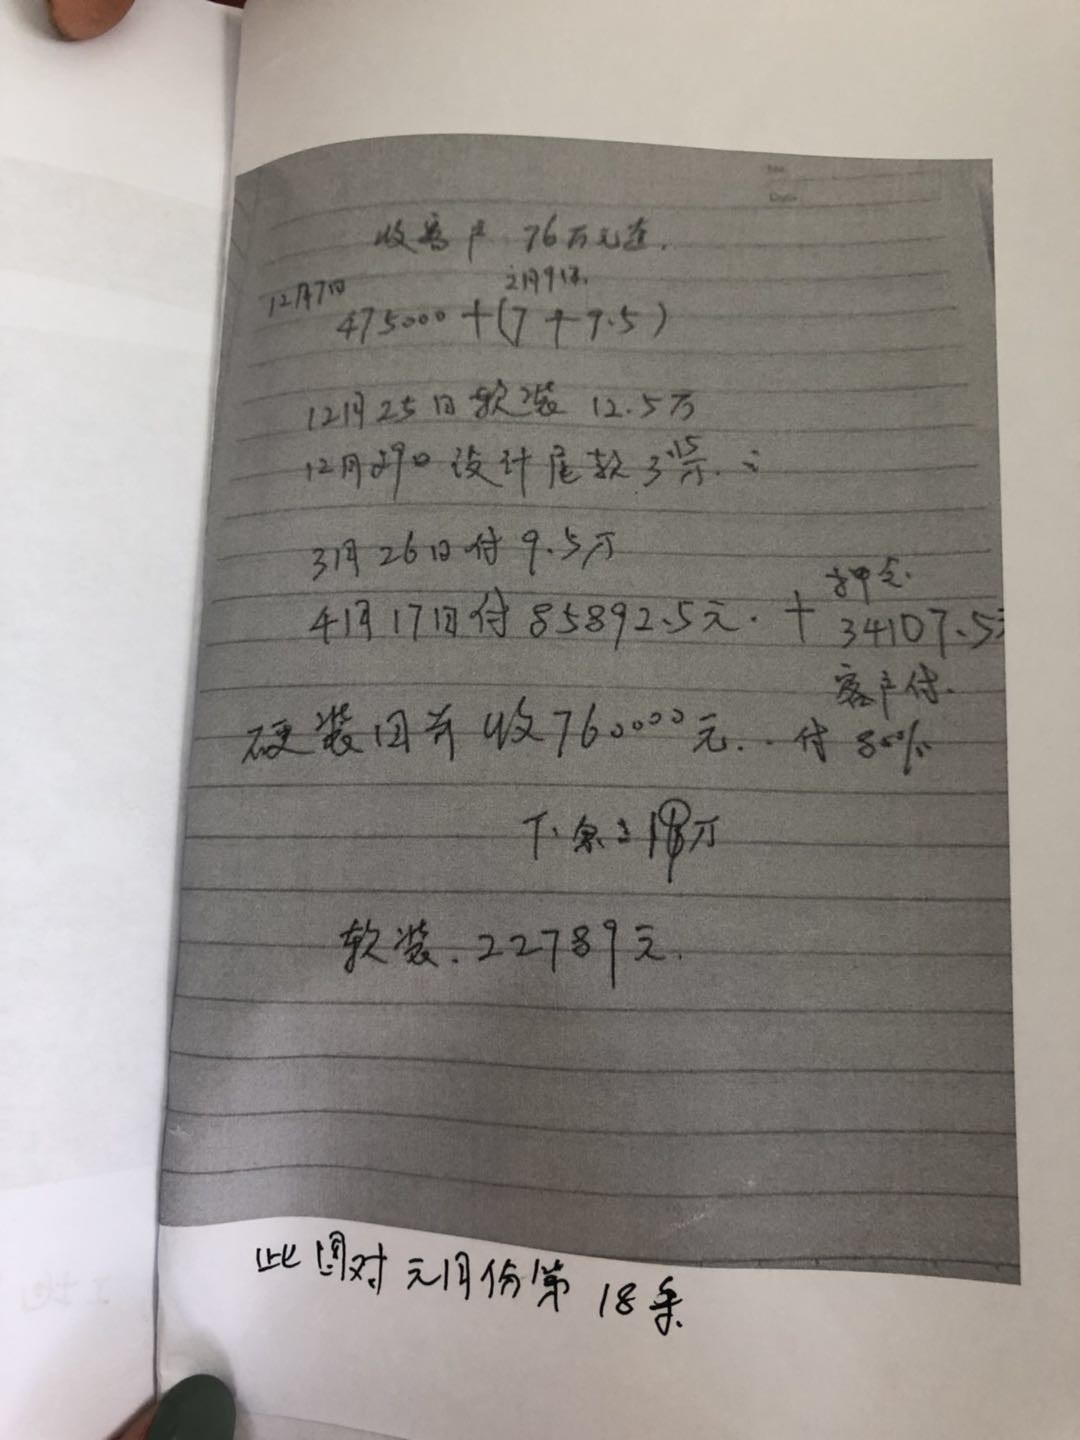 No.
Date
收客户 76万元整.
12月7日 2月9日.
475000+(7+9.5)
12月25日软装 12.5万
12月29日设计尾款3.15万.
3月26日付9.5万
押金.
4月17日付85892.5元.+34107.5
客户付.
硬装 收760000元..付80%
下余 19万
软装.22789元.
此图对元月份第18条